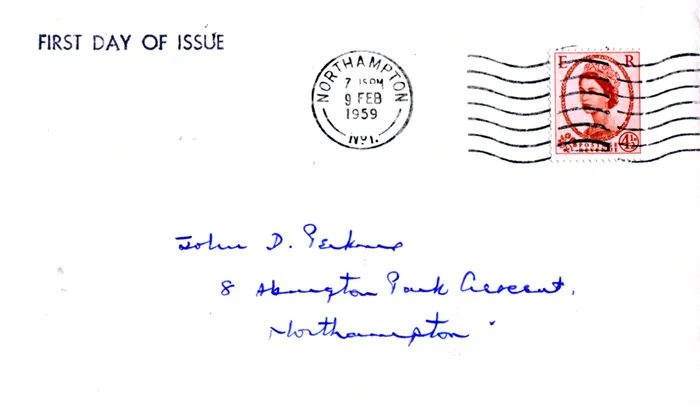 FIRST DAY OF ISSUE
NORTHAMPTON
7 15PM
9 FEB
1959
Nº1.
E R
POSTAGE
REVENUE
4½
John D. Perkins
8 Abington Park Crescent,
Northampton